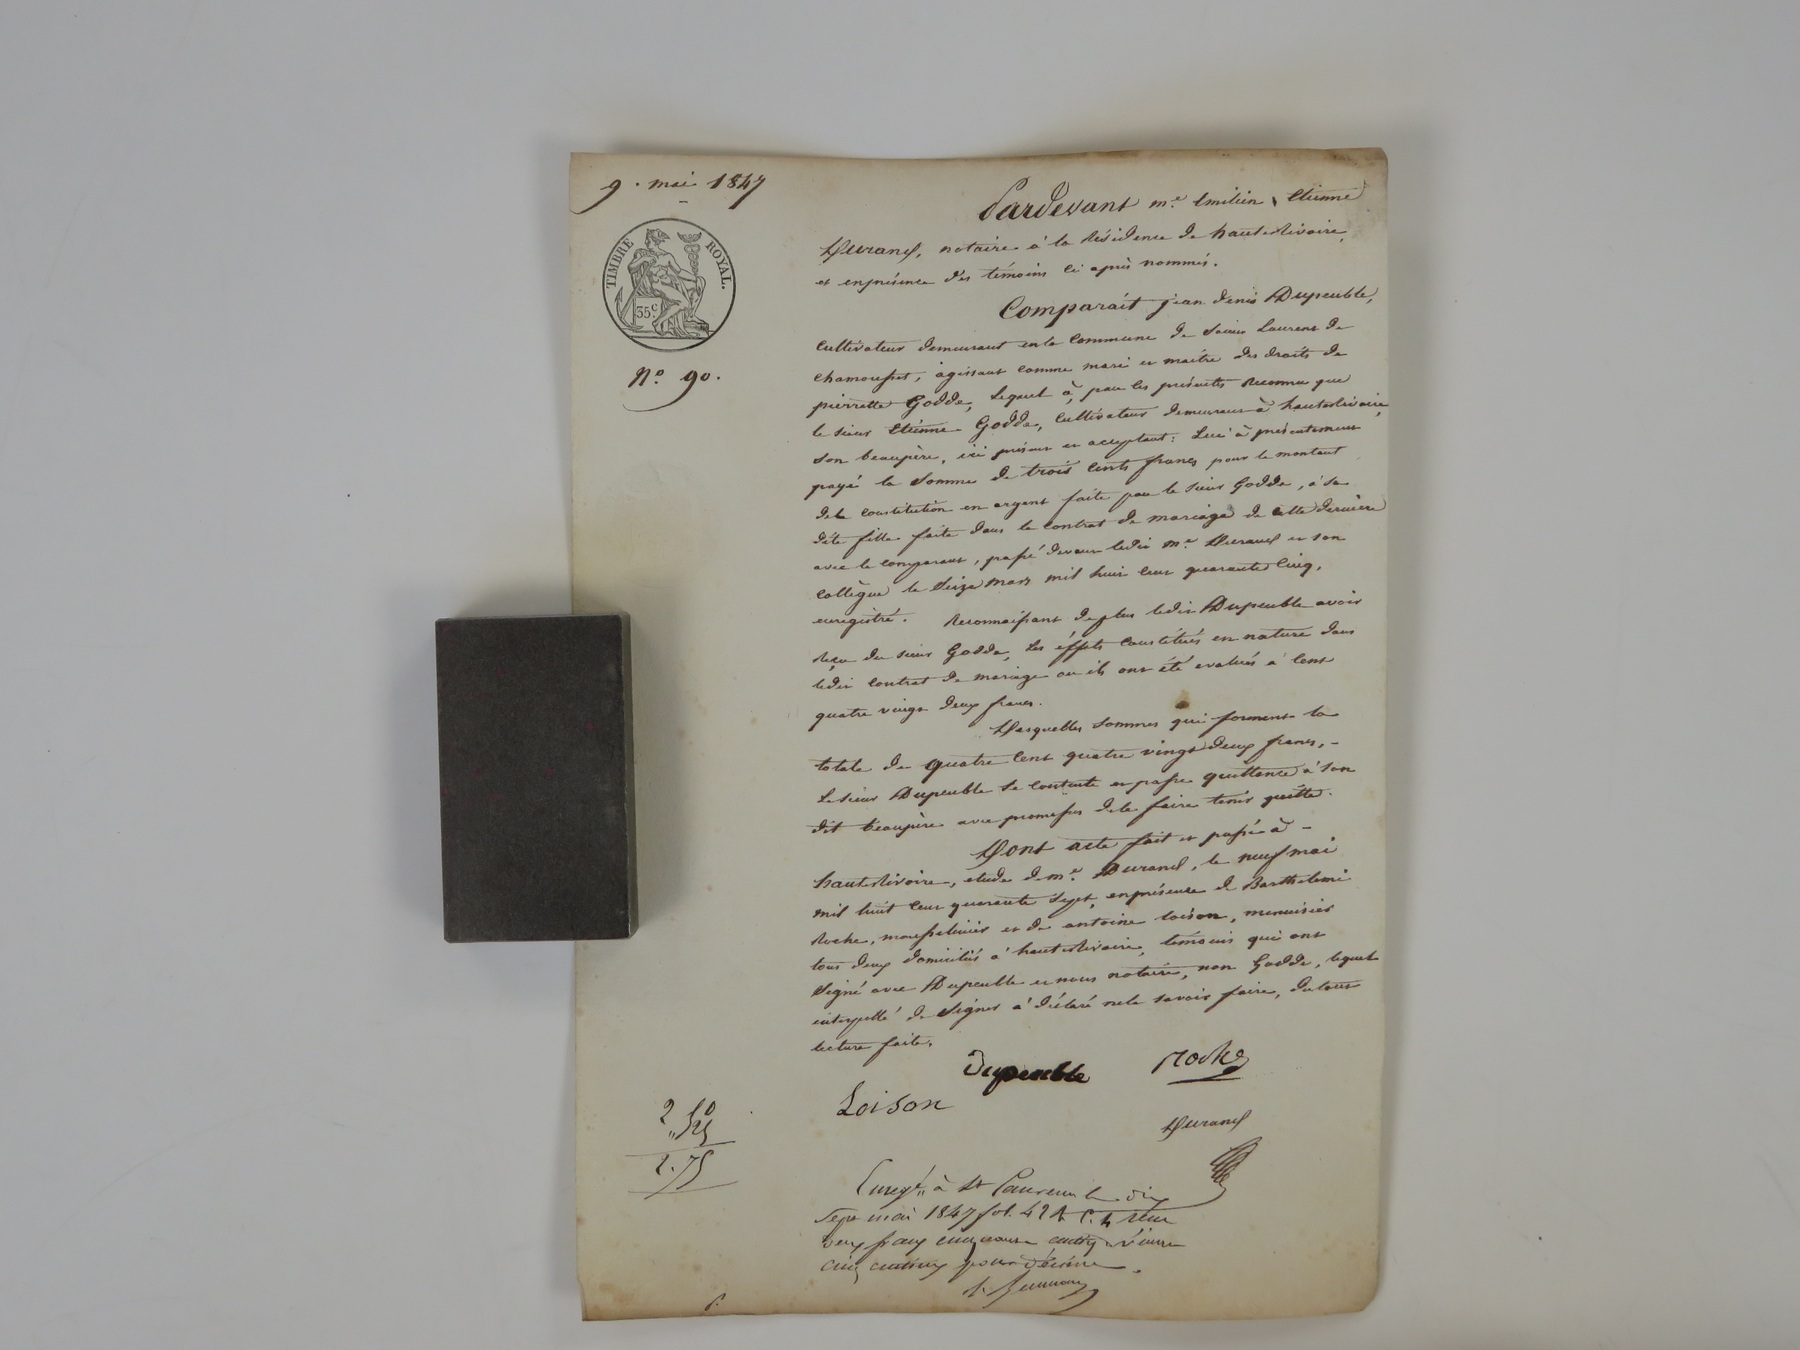 9. mai 1847
TIMBRE ROYAL.
35 c.
N.o 90.
Pardevant m.e Emilien Etienne
Durand, notaire à la Résidence de hauterivoire,
et enprésence des témoins ci après nommés.
Comparait jean denis Dupeuble,
cultivateur demeurant en la commune de Saint Laurent de
chamousset, agissant comme mari et maître des droits de
pierrette Godde, lequel à, par les présentes Reconnu que
le sieur Etienne Godde, cultivateur demeurant à hauterivoire,
son beaupère, ici présent et acceptant: Lui à présentement
payé la Somme de trois cents francs pour le montant
dela constitution en argent faite par le sieur Godde, à sa
dite fille faite dans le contrat de mariage de cette dernière
avec le comparant, passé devant ledit m.e Durand et son
collègue le Seize mars mil huit cent quarante cinq,
enregistré. Reconnaissant deplus ledit Dupeuble avoir
Reçu du sieur Godde, les éffets constitués en nature dans
ledit contrat de mariage ou ils ont été evalués à cent
quatre vingt deux francs.
Desquelles sommes qui forment la
totale de quatre cent quatre vingt deux francs,
Le sieur Dupeuble se contente en passe quittance à son
dit beaupère avec promesses dele faire tenir quitte.
Dont acte fait et passé à
hauterivoire, etude de m.e Durand, le neuf mai
mil huit cent quarante Sept, enprésence de Barthelemi
Roche, mousselinier et de antoine loison, menuisier
tous deux domiciliés à hauterivoire, témoins qui ont
Signé avec Dupeuble et nous notaire, non Godde, lequel
interpellé de Signer à déclaré nele savoir faire, dutout
lecture faite.
Dupeuble
Roche
Loison
Durand
2 50
" 25
2.75
Enregé. à St Laurent le dix
Sept mai 1847 fol. 42 C. 4 Reçu
deux francs cinquante centimes vingt
cinq centimes pour décime.